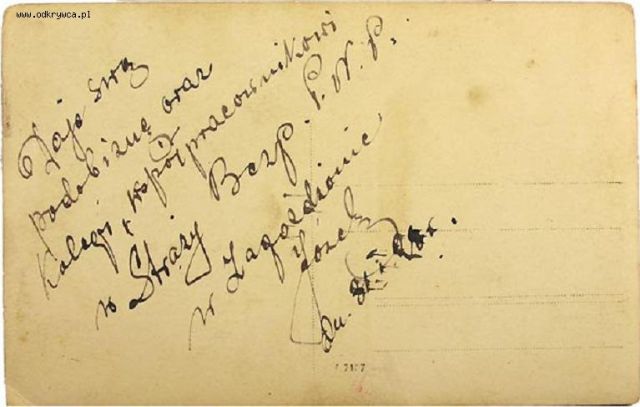 www.odkrywca.pl
Daję swą
podobiznę oraz
kolegi, współpracownikowi
w Straży Bezp. P.W.P.
w Zagożdżonie
Józek
dn.
7127